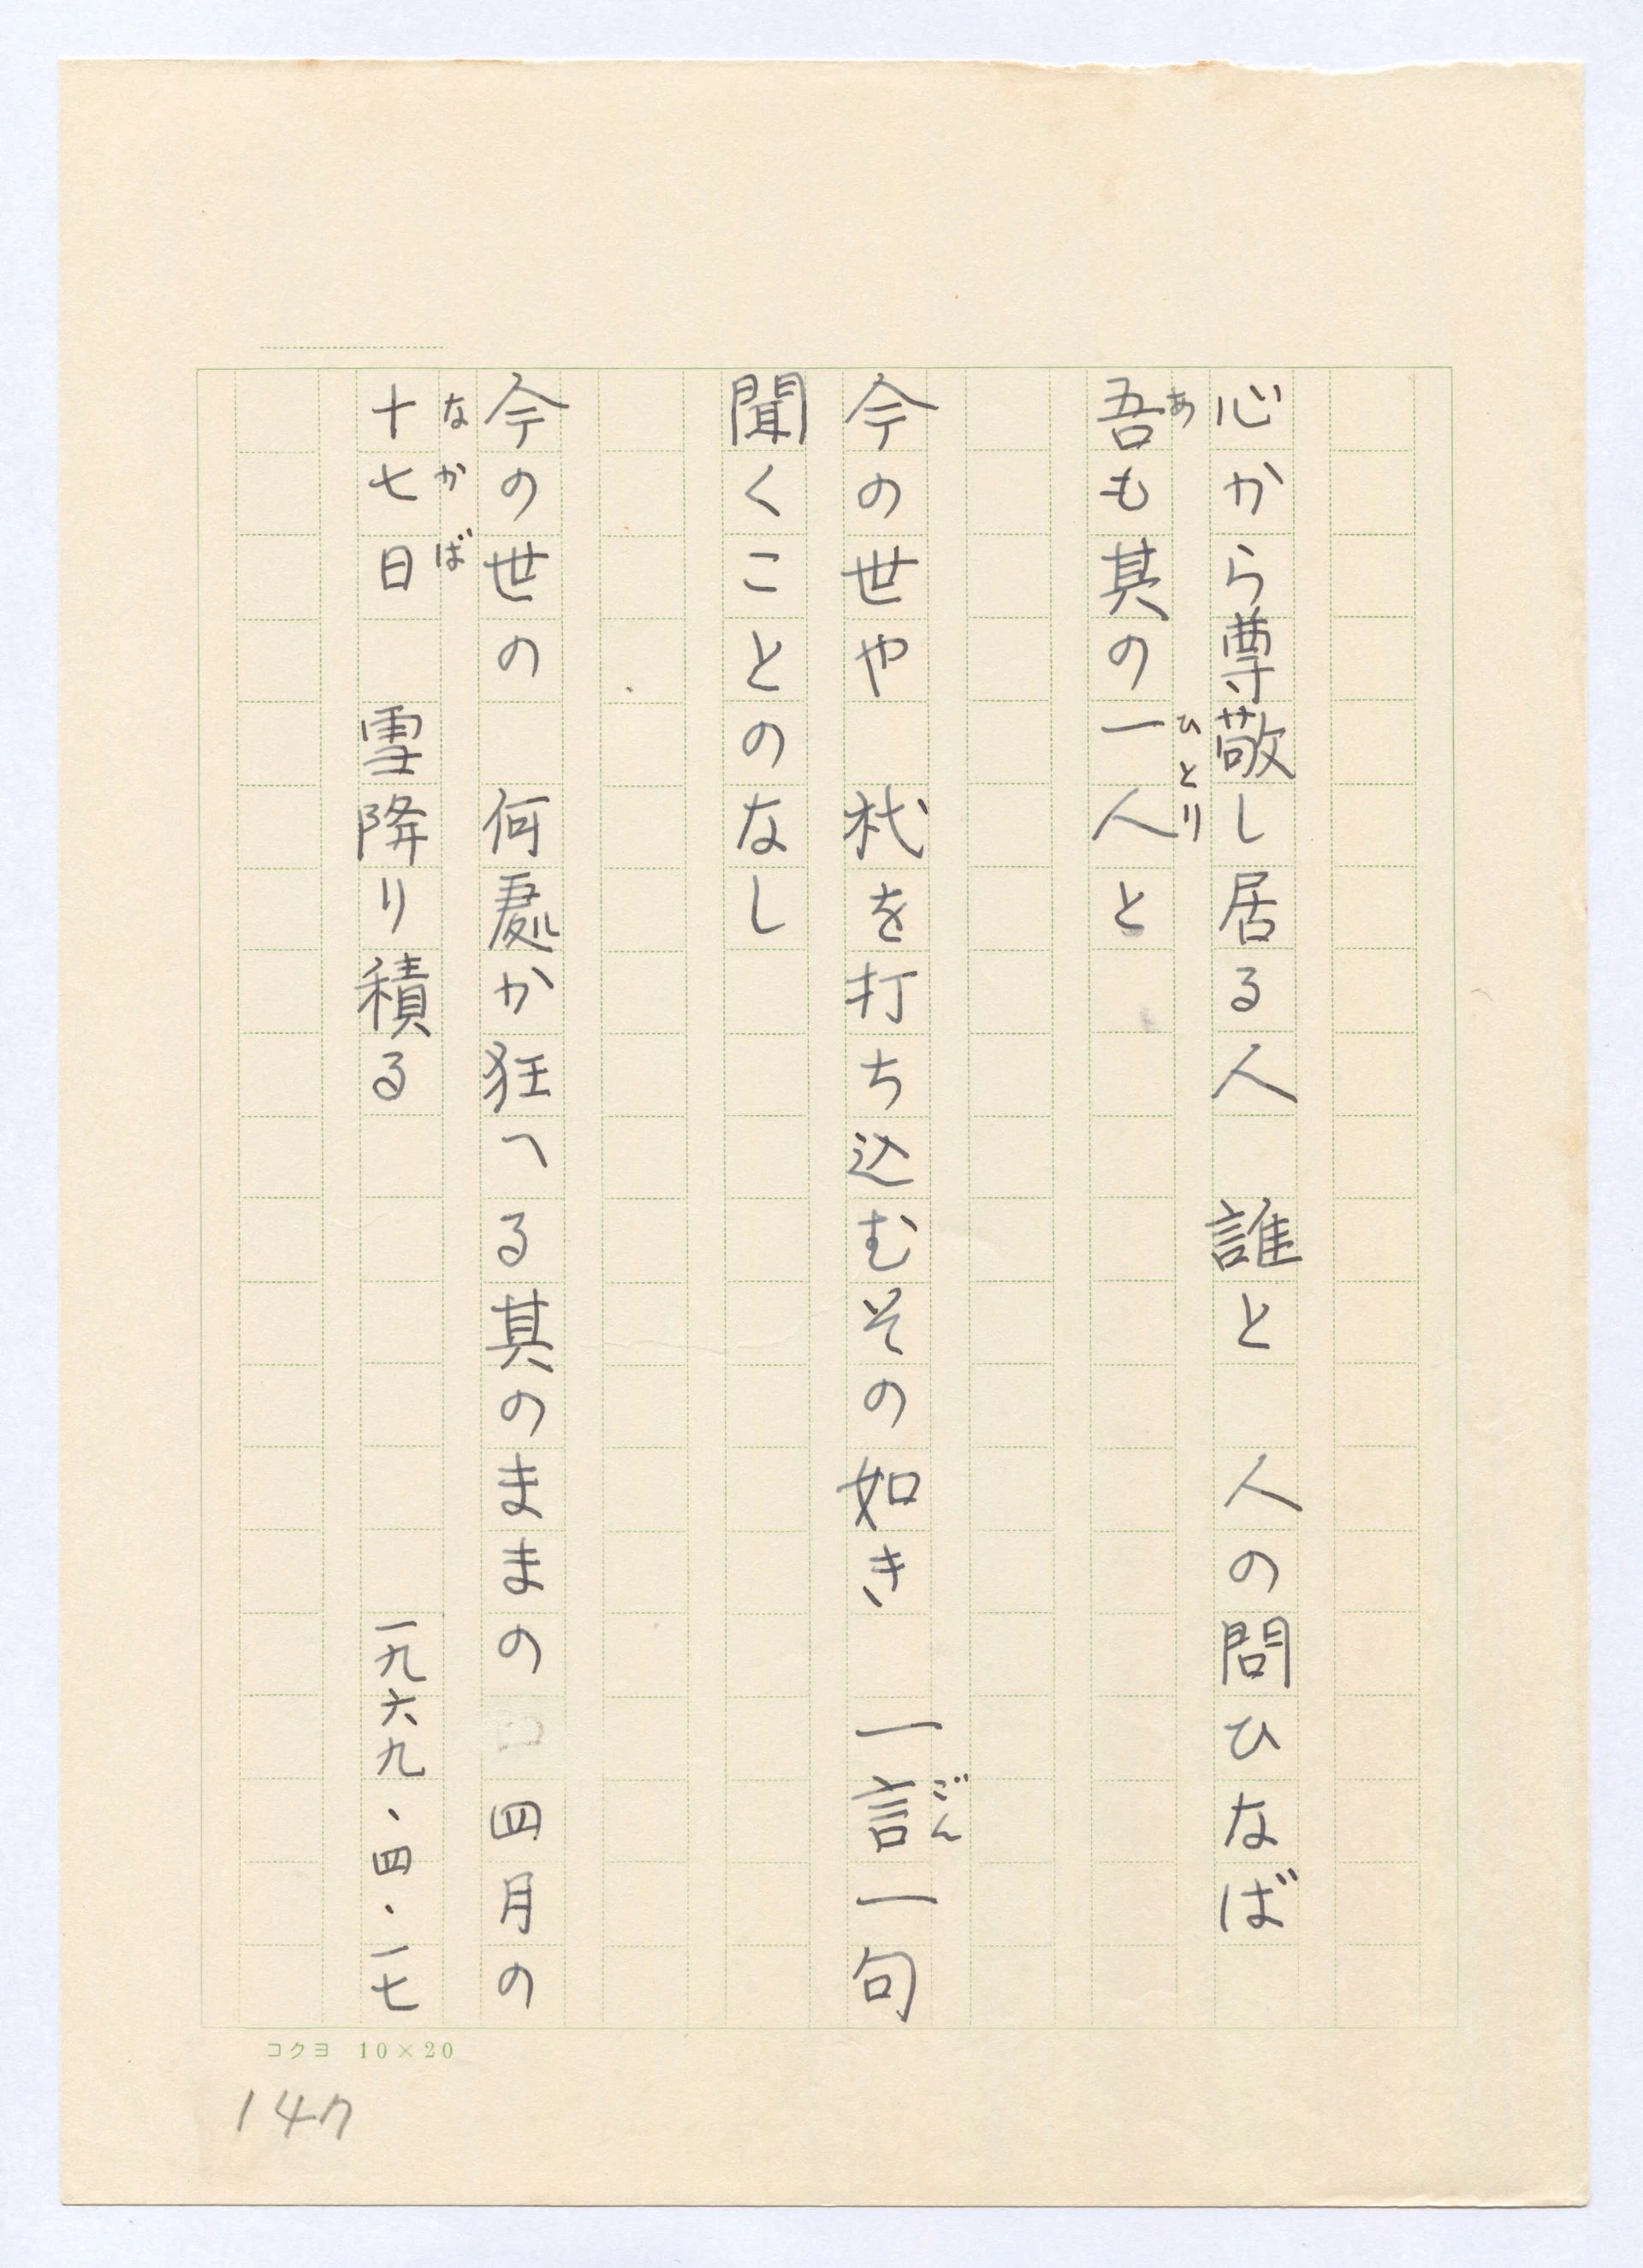 心から尊敬し居る人　誰と　人の問ひなば
吾も其の一人と
あ
ひとり
今の世や　杙を打ち込むその如き　一言一句
ごん
聞くことのなし
今の世の　何処か狂つる其のままの　四月の
十七日　雪降り積る
なかば
一九六九・四・一七
コクヨ 10×20
147